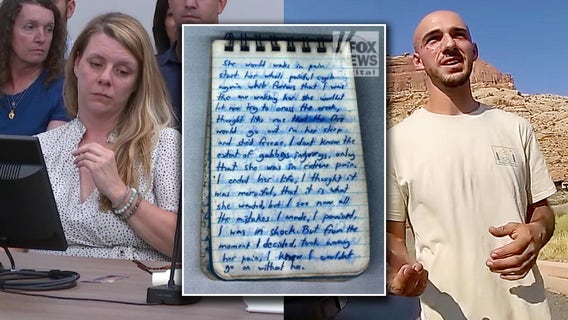 FOX
NEWS
digital
She would wake in pain
start her whole painful
again what furious that I was
the one waking her. She wouldn't
let me try to cross the creek
thought like me that the fire
would go out in her sleep
and she'd freeze. I don't know the
extent of gabbys injurys, only
that she was in extreme pain.
I ended her life, I thought it
was merciful, that it is what
she wanted, but I see now all
the mistakes I made, I panicked,
I was in shock. But from the
moment I decided, took away
her pain, I knew I couldn't
go on without her.